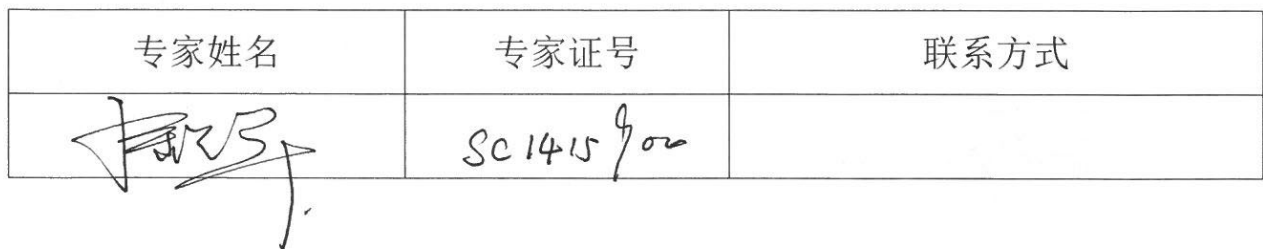 专家姓名 专家证号 联系方式
SC1415